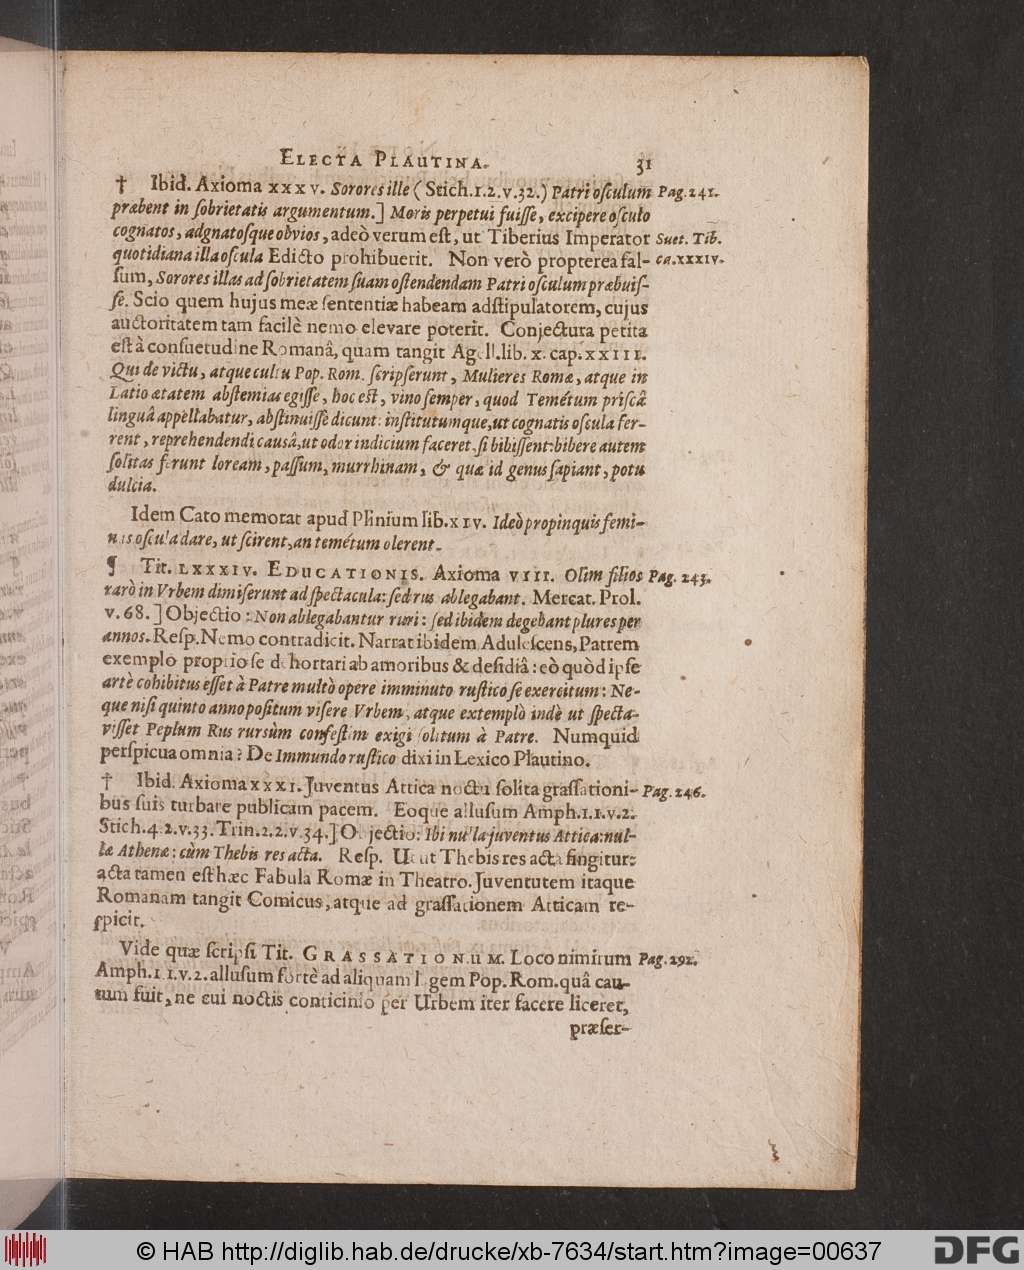 ELECTA PLAUTINA. 31
† Ibid. Axioma XXXV. Sorores ille (Stich.1.2.v.32.) Patri oſculum Pag. 241.
præbent in ſobrietatis argumentum.] Moris perpetui fuiſſe, excipere oſculo
cognatos, adgnatoſque obvios, adeò verum eſt, ut Tiberius Imperator Suet. Tib.
quotidiana illa oſcula Edicto prohibuerit. Non verò propterea fal- ca.XXXIV.
ſum, Sorores illas ad ſobrietatem ſuam oſtendendam Patri oſculum præbuiſ-
ſe. Scio quem hujus meæ ſententiæ habeam adſtipulatorem, cujus
auctoritatem tam facilè nemo elevare poterit. Conjectura petita
eſt à conſuetudine Romanâ, quam tangit Agell. lib. x. cap. XXIII.
Qui de victu, atque cultu Pop. Rom. ſcripſerunt, Mulieres Romæ, atque in
Latio ætatem abſtemias egiſſe, hoc eſt, vino ſemper, quod Temétum priſcâ
linguâ appellabatur, abſtinuiſſe dicunt: inſtitutumque, ut cognatis oſcula fer-
rent, reprehendendi causâ, ut odor indicium faceret, ſi bibiſſent: bibere autem
ſolitas ferunt loream, paſſum, murrhinam, & quæ id genus ſapiant, potu
dulcia.
Idem Cato memorat apud Plinium lib. XIV. Ideò propinquis femi-
nas oſcula dare, ut ſcirent, an temétum olerent.
¶ Tit. LXXXIV. EDUCATIONIS. Axioma VIII. Olim filios Pag. 243.
rarò in Vrbem dimiſerunt ad ſpectacula: ſed rus ablegabant. Mercat. Prol.
v. 68.] Objectio: Non ablegabantur ruri: ſed ibidem degebant plures per
annos. Reſp. Nemo contradicit. Narrat ibidem Aduleſcens, Patrem
exemplo proprio ſe dehortari ab amoribus & deſidiâ: eò quòd ipſe
artè cohibitus eſſet à Patre multò opere imminuto ruſtico ſe exercitum: Ne-
que niſi quinto anno poſitum viſere Vrbem, atque extemplò inde ut ſpecta-
viſſet Peplum Rus rursùm confeſtim exigi ſolitum à Patre. Numquid
perſpicua omnia? De Immundo ruſtico dixi in Lexico Plautino.
† Ibid. Axioma XXXI. Juventus Attica noctu ſolita graſſationi- Pag. 246.
bus ſuis turbare publicam pacem. Eoque alluſum Amph.1.1.v.2.
Stich.4.2.v.33. Trin.2.2.v.34.] Objectio: Ibi nulla juventus Attica: nul-
læ Athenæ: cùm Thebis res acta. Reſp. Ut ut Thebis res acta fingitur:
acta tamen eſt hæc Fabula Romæ in Theatro. Juventutem itaque
Romanam tangit Comicus, atque ad graſſationem Atticam re-
ſpicit.
Vide quæ ſcripſi Tit. GRASSATIONUM. Loco nimirum Pag. 292.
Amph.1.1.v.2. alluſum fortè ad aliquam Legem Pop. Rom. quâ cau-
tum fuit, ne cui noctis conticinio per Urbem iter facere liceret,
præſer-
© HAB http://diglib.hab.de/drucke/xb-7634/start.htm?image=00637
DFG